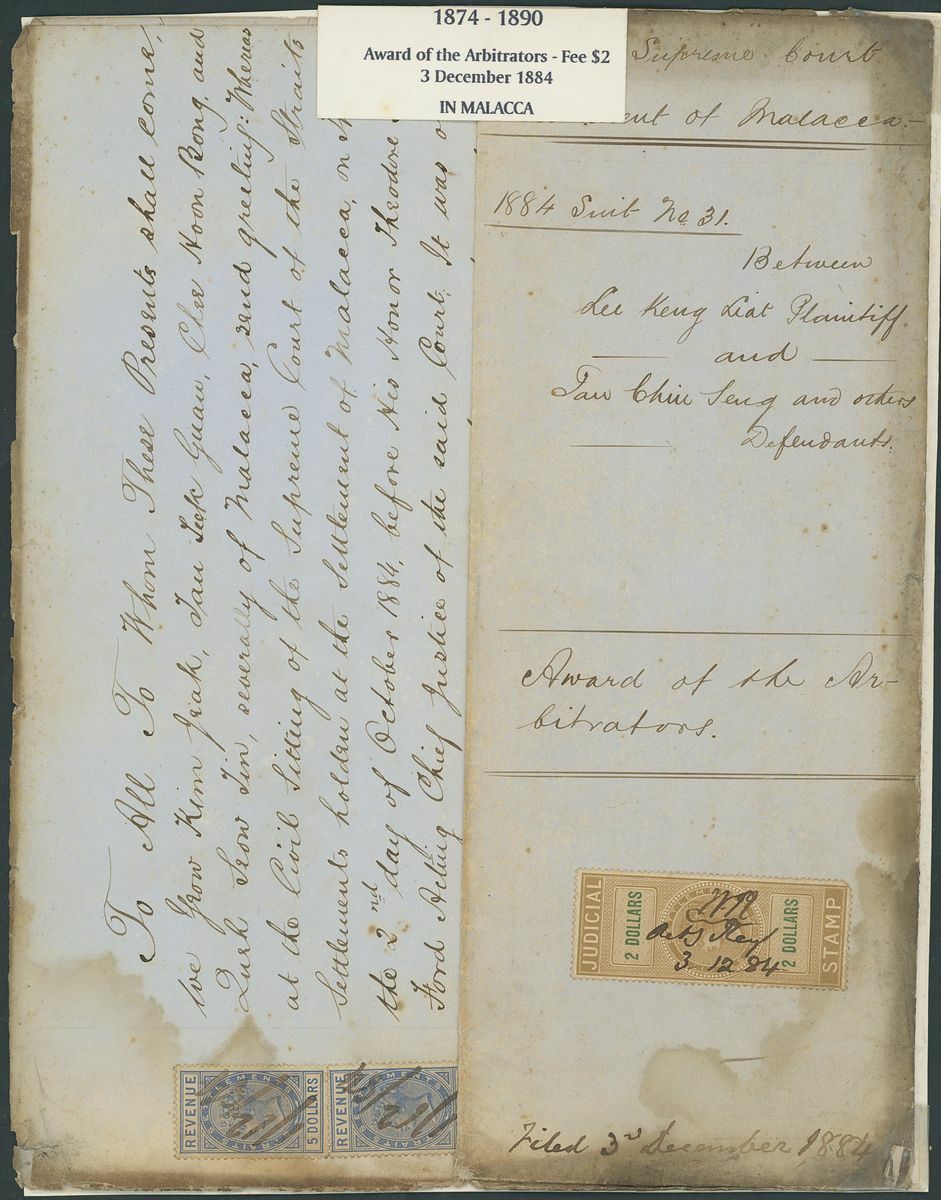 1874 - 1890
Award of the Arbitrators - Fee $2
3 December 1884
IN MALACCA
Supreme Court
of Malacca.
1884 Suit No. 31.
Between
Lee Keng Liat Plaintiff
and
Tan Chin Seng and others
Defendants.
Award of the Ar-
bitrators.
JUDICIAL
2 DOLLARS
3 12 84
2 DOLLARS
STAMP
Filed 3rd December 1884
To All To Whom These Presents shall come,
We Yeow Kim Jiak, Tan Teck Guan, Chee Hoon Bong and
Seow Tin, severally of Malacca, send greeting: Whereas
at the Civil Sitting of the Supreme Court of the Straits
Settlements holden at the Settlement of Malacca, on
the 2nd day of October 1884, before His Honor Theodore
Ford Acting Chief Justice of the said Court, It was
REVENUE
5 DOLLARS
REVENUE